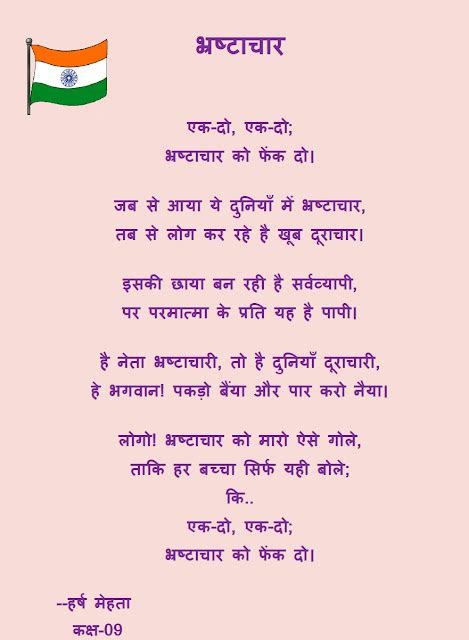 भ्रष्टाचार
एक-दो, एक-दो;
भ्रष्टाचार को फेंक दो।
जब से आया ये दुनियाँ में भ्रष्टाचार,
तब से लोग कर रहे है खूब दूराचार।
इसकी छाया बन रही है सर्वव्यापी,
पर परमात्मा के प्रति यह है पापी।
है नेता भ्रष्टाचारी, तो है दुनियाँ दूराचारी,
हे भगवान! पकड़ो बैंया और पार करो नैया।
लोगो! भ्रष्टाचार को मारो ऐसे गोले,
ताकि हर बच्चा सिर्फ यही बोले;
कि..
एक-दो, एक-दो;
भ्रष्टाचार को फेंक दो।
--हर्ष मेहता
कक्ष-09